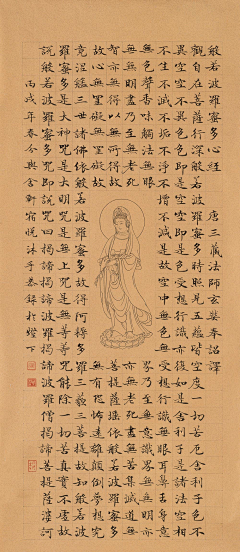 般若波羅蜜多心經 唐三藏法師玄奘奉詔譯
觀自在菩薩行深般若波羅蜜多時照見五蘊皆空度一切苦厄舍利子色不
異空空不異色色即是空空即是色受想行識亦復如是舍利子是諸法空相
不生不滅不垢不淨不增不減是故空中無色無受想行識無眼耳鼻舌身意
無色聲香味觸法無眼界乃至無意識界無無明亦
無無明盡乃至無老死亦無老死盡無苦集滅道無
智亦無得以無所得故菩提薩埵依般若波羅蜜多
故心無罣礙無罣礙故無有恐怖遠離顛倒夢想究
竟涅槃三世諸佛依般若波羅蜜多故得阿耨多羅三藐三菩提故知般若波
羅蜜多是大神咒是大明咒是無上咒是無等等咒能除一切苦真實不虛故
說般若波羅蜜多咒即說咒曰揭諦揭諦波羅揭諦波羅僧揭諦菩提薩婆訶
丙戌年春分 沐手恭錄於燈下